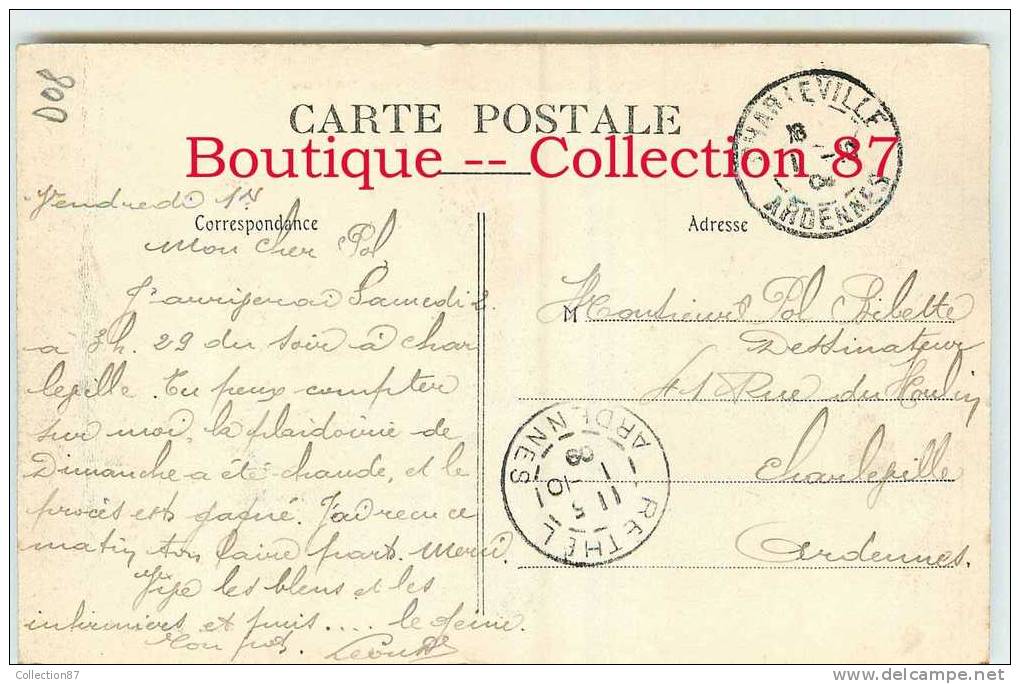 D08
CARTE POSTALE
Boutique -- Collection 87
CHARLEVILLE
ARDENNES
Vendredi 1er
Correspondance
Mon Cher Pol
J'arriverai Samedi 2
à 3h. 29 du soir à Char
leville. Tu peux compter
sur moi, la plaidoirie de
Dimanche a été chaude, et le
procès est gagné. J'ai reçu ce
matin ton faire part. Merci.
les bleus et les
infirmiers et puis .... le
Ton pot.
Adresse
M
Monsieur Pol Bibette
Dessinateur
41 Rue du Moulin
Charleville
Ardennes.
RETHEL
ARDENNES
11 5
1 -10
08
Collection87
delcampe.net